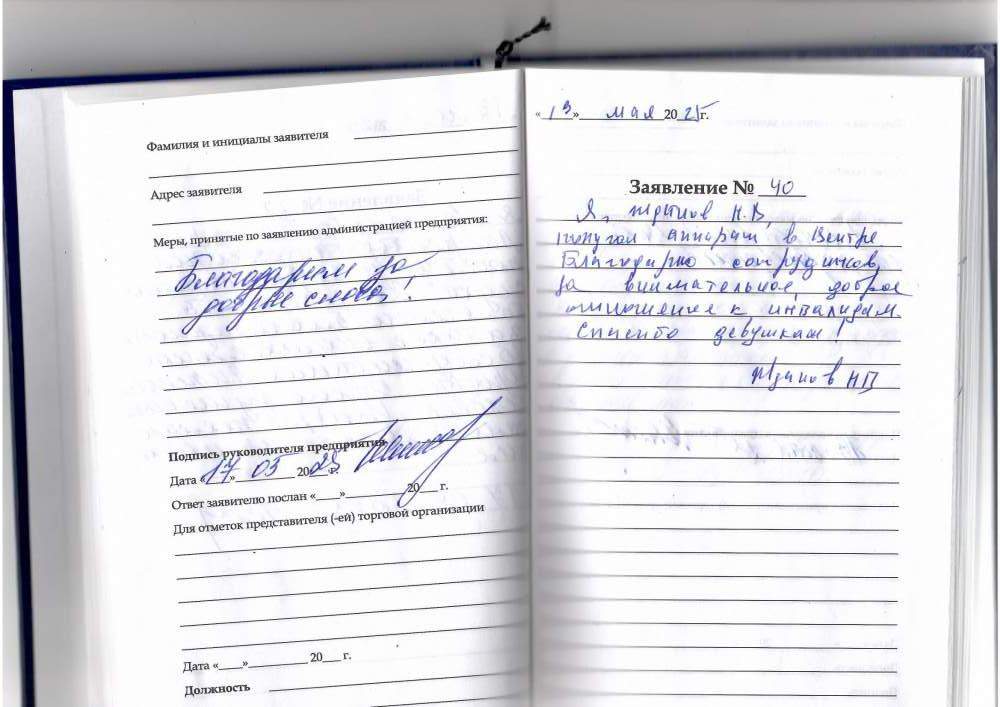 Фамилия и инициалы заявителя
Адрес заявителя
Меры, принятые по заявлению администрацией предприятия:
Благодарим за
добрые слова!
Подпись руководителя предприятия
Дата «17» 05 2025 г.
Ответ заявителю послан «____»__________20___ г.
Для отметок представителя (-ей) торговой организации
Дата «____»__________ 20___ г.
Должность
«13» мая 2025г.
Заявление № 40
Я, Жданов Н.В,
получал аппарат в Центре.
Благодарю сотрудников
за внимательное, доброе
отношение к инвалидам.
Спасибо девушкам!
Жданов НВ